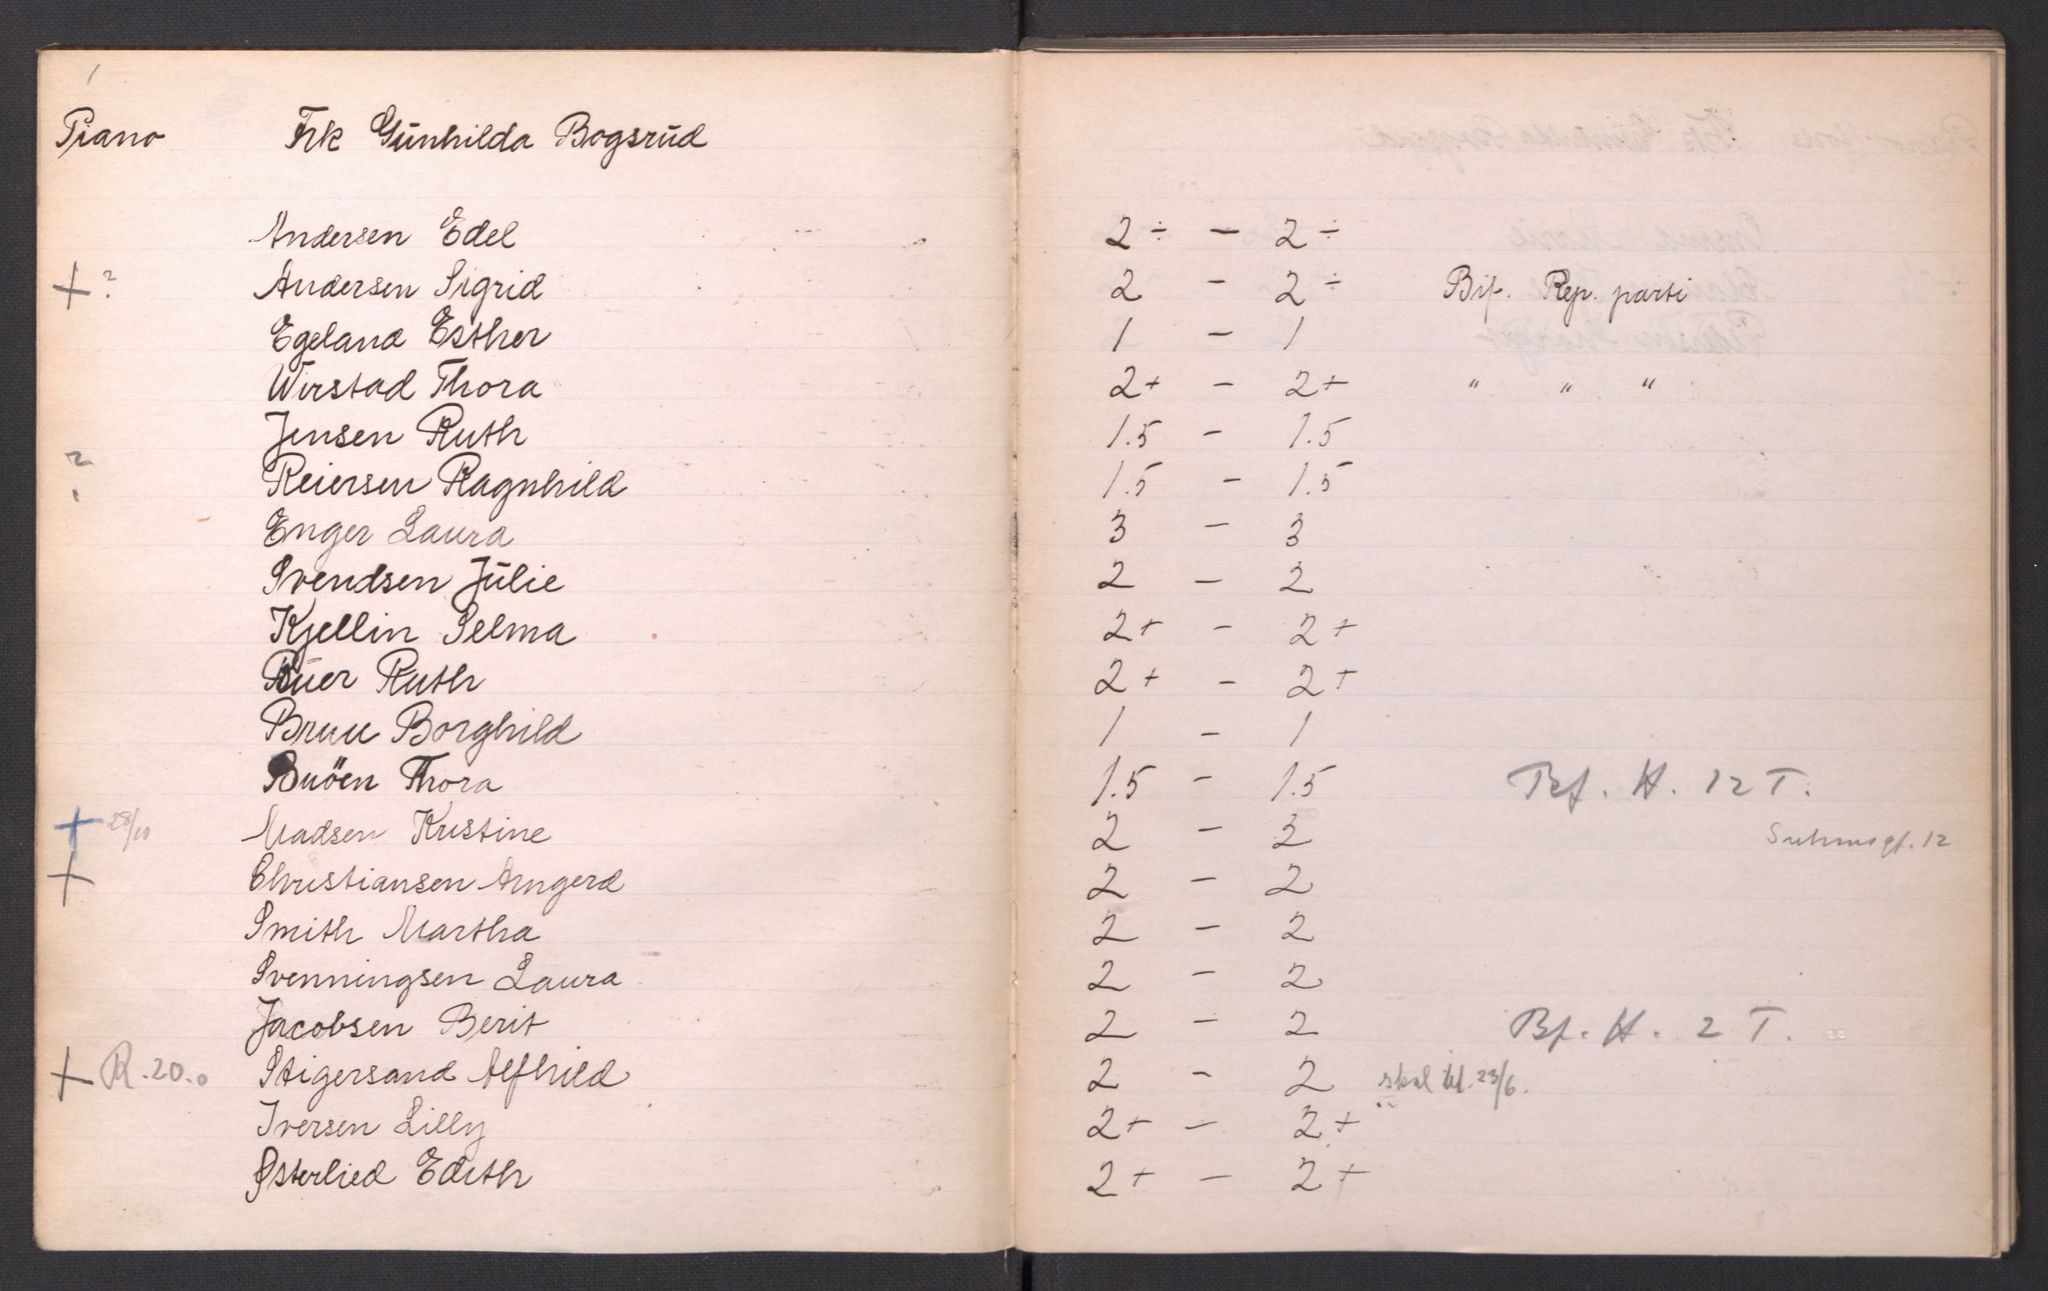 Piano Frk Gunhilda Bogsrud
Andersen Edel 2 ÷ — 2 ÷
+ ? Andersen Sigrid 2 — 2 ÷ Bif. Rep. parti
Egeland Esther 1 — 1
Wirstad Thora 2+ — 2+ " " "
Jensen Ruth 1.5 — 1.5
? Reiersen Ragnhild 1.5 — 1.5
Enger Laura 3 — 3
Svendsen Julie 2 — 2
Kjellin Selma 2+ — 2+
Buer Ruth 2+ — 2+
Bruu Borghild 1 — 1
Buöen Thora 1.5 — 1.5 Bf. H. 12 T.
+ 28/10 Madsen Kristine 2 — 2 12
+ Christiansen Arngerd 2 — 2
Smith Martha 2 — 2
Svenningsen Laura 2 — 2
Jacobsen Berit 2 — 2 Bf. H. 2 T.
+ R. 20.0 Stigersand Alfhild 2 — 2 skal 23/6.
Iversen Lilly 2+ — 2+
Østerlied Edith 2+ — 2+